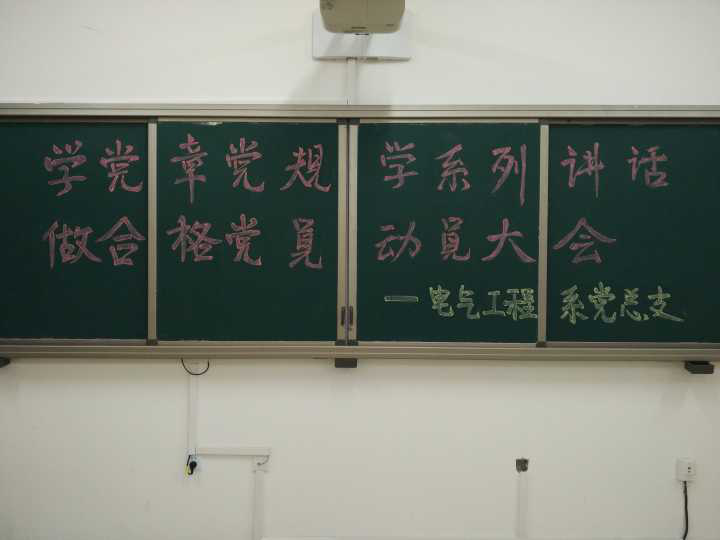 学党章党规 学系列讲话
做合格党员 动员大会
一电气工程系党总支